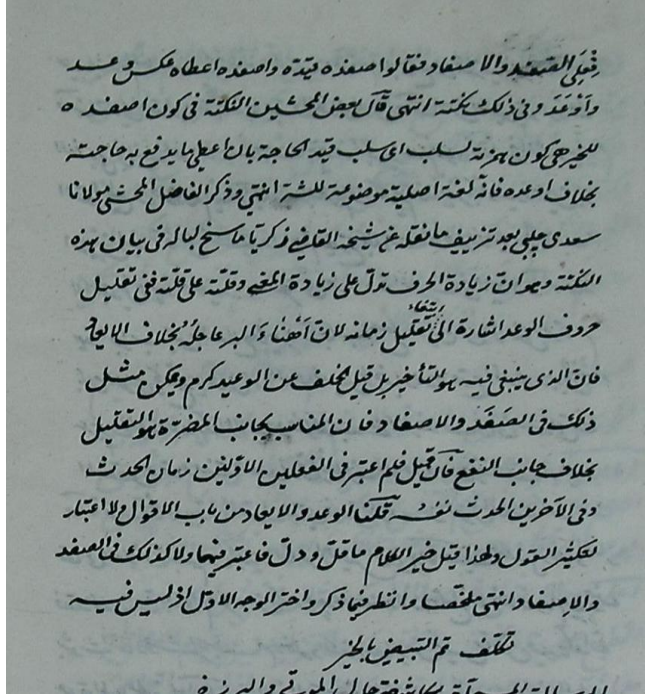 فعلى الصفد والاصفاد فقالوا صفده قيّده واصفده اعطاه عكس وعد
واَوْعَدَ وفى ذلك نكتة انتهى قال بعض المحشين النكتة فى كون اصفده
للخير هى كون همزته لسلب اى سلب قيد الحاجة بان اعطى ما يدفع به حاجته
بخلاف اوعده فانه لغة اصلية موضوعة للشر انتهى وذكر الفاضل المحشى مولانا
سعدى چلبى بعد تزييف ما نقله عن شيخه القاضى زكريّا ما سنح لباله فى بيان هذه
النكتة وهو ان زيادة الحرف تدلّ على زيادة المعنى وقلّته على قلّته ففى تقليل
حروف الوعد اشارة الى تقليل زمانه لانّ اَهْنَاءَ البر عاجلُه بخلاف الايعاد
فانّ الذى ينبغى فيه هو التأخير بل قيل الخلف عن الوعيد كرم ويمكن مثل
ذلك فى الصَفَد والاصفاد فان المناسب بجانب المضرّة هو التقليل
بخلاف جانب النفع فان قيل فلم اعتبر فى الفعلين الاوّلين زمان الحدث
وفى الآخرين الحدث نفسه قلنا الوعد والايعاد من باب الاقوال ولا اعتبار
لتكثير القول ولهذا قيل خير الكلام ما قلّ ودلّ فاعتبر فيهما ولا كذلك فى الصفد
والاصفاد انتهى ملخصا وانظر فيما ذكر واختر الوجه الاوّل اذ ليس فيه
تكلف تم التبييض بالخير